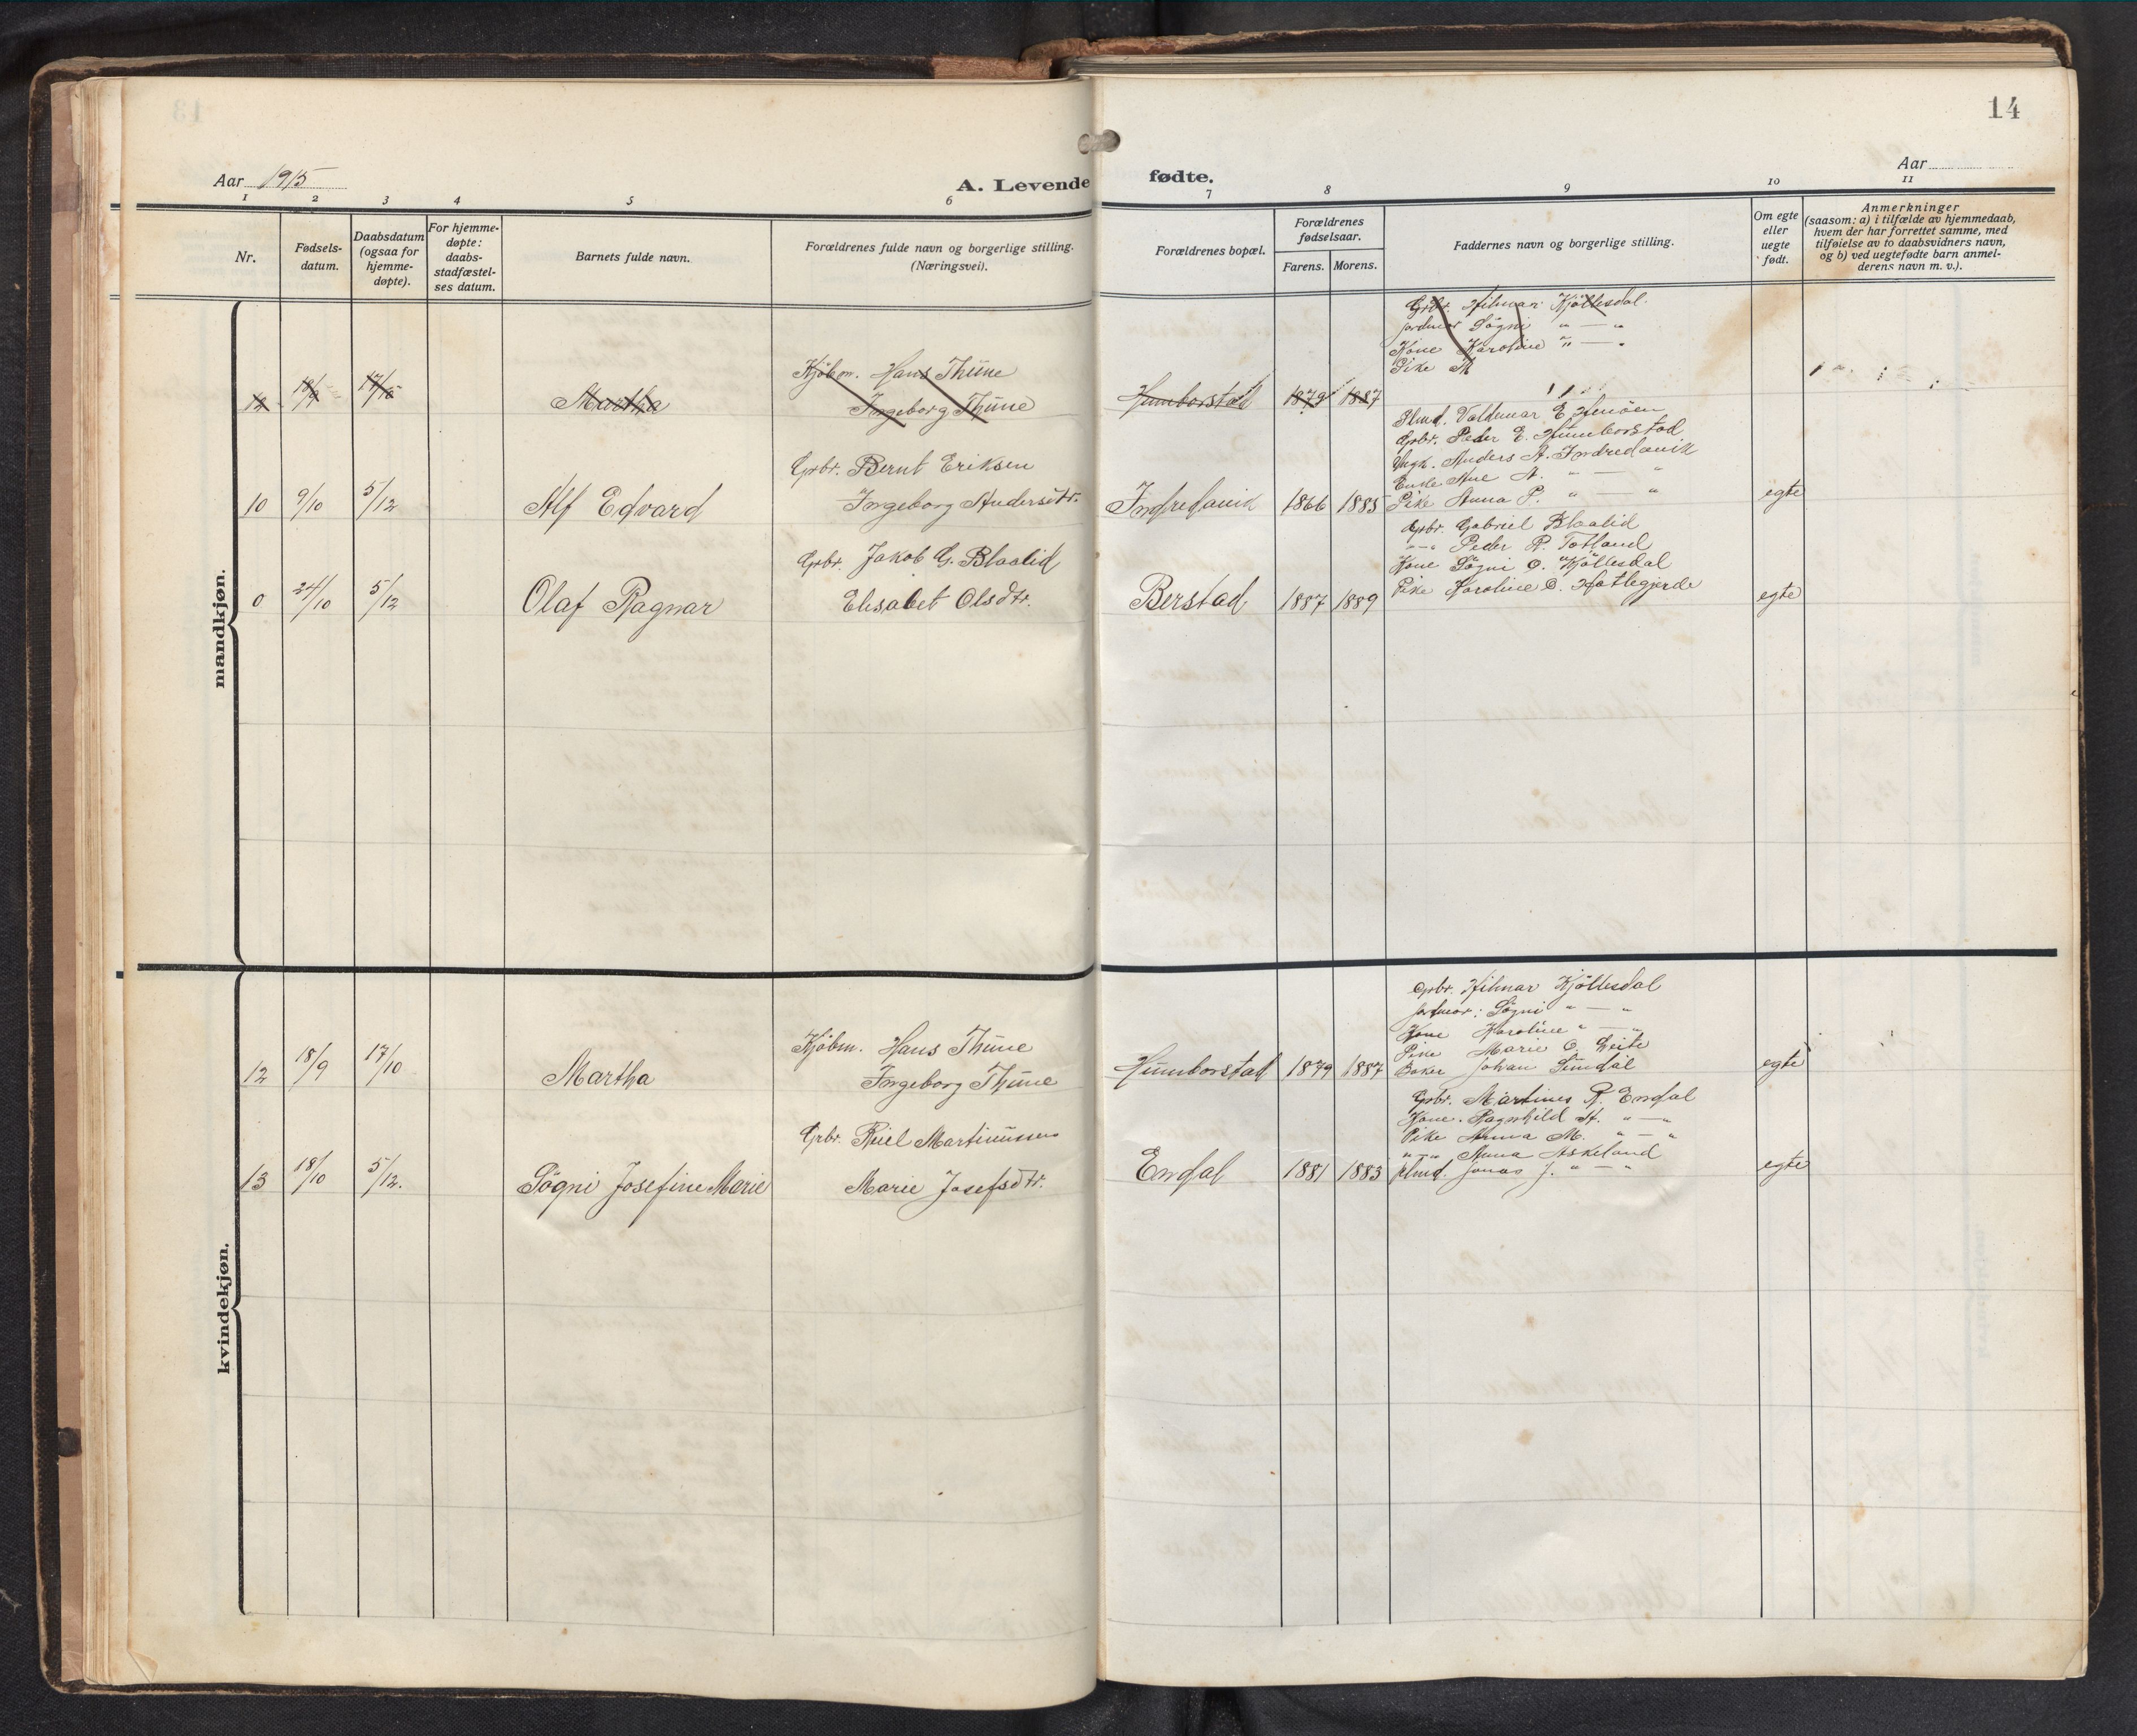 14
Aar 1915
A. Levende fødte.
Aar
1 2 3 4 5 6 7 8 9 10 11
Nr.
Fødsels-
datum.
Daabsdatum
(ogsaa for
hjemme-
døpte).
For hjemme-
døpte:
daabs-
stadfæstel-
ses datum.
Barnets fulde navn.
Forældrenes fulde navn og borgerlige stilling.
(Næringsvei).
Forældrenes bopæl.
Forældrenes
fødselsaar.
Farens. Morens.
Faddernes navn og borgerlige stilling.
Om egte
eller
uegte
født.
Anmerkninger
(saasom: a) i tilfælde av hjemmedaab,
hvem der har forrettet samme, med
tilføielse av to daabsvidners navn,
og b) ved uegtefødte barn anmel-
derens navn m. v.).
mandkjøn.
12 18/9 Martha
Kjöbm. Hans Thüne
Ingeborg Thüne
Humborstad 1879 1887
Grbr. Hilmar Kjöllesdal.
Jordmor Sögni " — "
Kone Karoline " — "
Pike M
10 9/10 5/12 Alf Edvard
Grbr. Bernt Eriksen
Ingeborg Andersdtr.
Indredavik 1866 1885
Ulmd. Valdemar E.
Grbr. Peder E. Humborstad
Ungk. Anders A. Indredavik
Enke Ane A. " — "
Pike Anna P. " — "
egte
0 24/10 5/12 Olaf Ragnar
Grbr. Jakob G. Blaalid
Elisabet Olsdtr.
Berstad 1887 1889
Grbr. Gabriel Blaalid
" — " Peder R. Totland
Kone Sögni O. Kjöllesdal
Pike Karoline D. Hatlegjerde
egte
kvindekjøn.
12 18/9 17/10 Martha
Kjöbm. Hans Thüne
Ingeborg Thüne
Humborstad 1879 1887
Grbr. Hilmar Kjöllesdal
Jordmor: Sögni " — "
Kone Karoline " — "
Pike Marie O. Leite
Baker Johan Sundal
egte
13 18/10 5/12. Sögni Josefine Marie
Grbr. Riel Martinussen
Marie Josefsdtr.
Endal 1881 1883
Grbr. Martines R. Endal
Kone. Ragnhild H. " — "
Pike Anna M. " — "
" — " Anna Askeland
Ulmd. Jonas J. " — "
egte